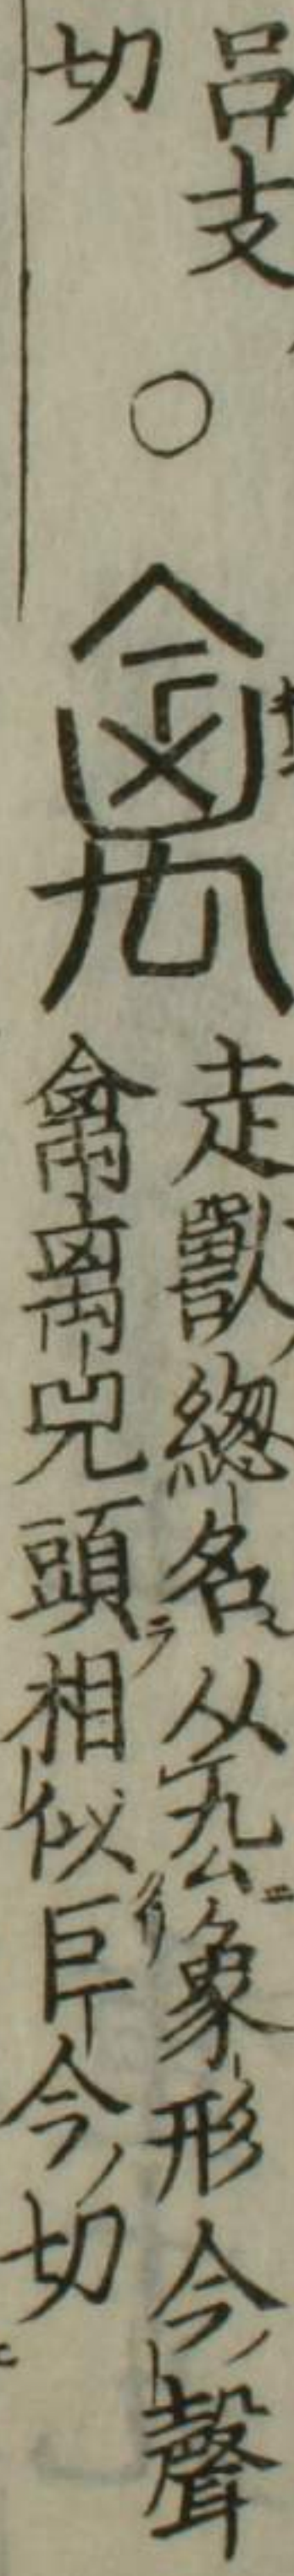 吕支
切
○
禽
走獸緫名从厹象形今聲
禽离兕頭相似巨今切